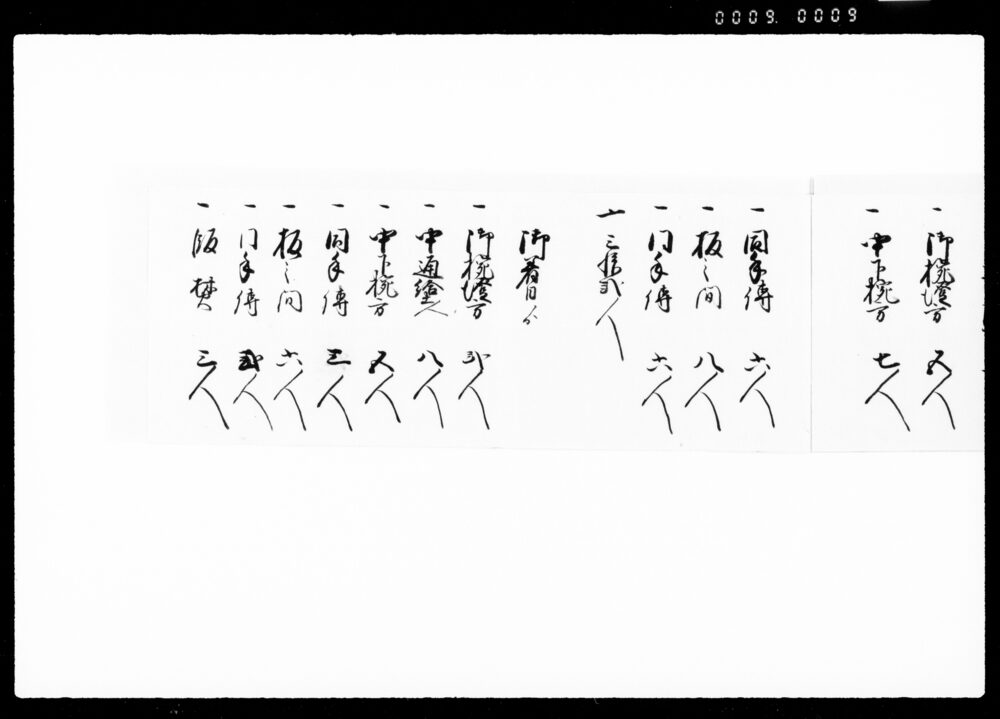 0009. 0009
一 御椀燈方 五人
一 中下椀方 七人
一 同手傳 六人
一 板之間 八人
一 同手傳 六人
〆 三拾弐人
御着日ゟ
一 御椀燈方 弐人
一 中通塗人 八人
一 中下椀方 五人
一 同手傳 三人
一 板之間 六人
一 同手傳 弐人
一 飯焚 三人